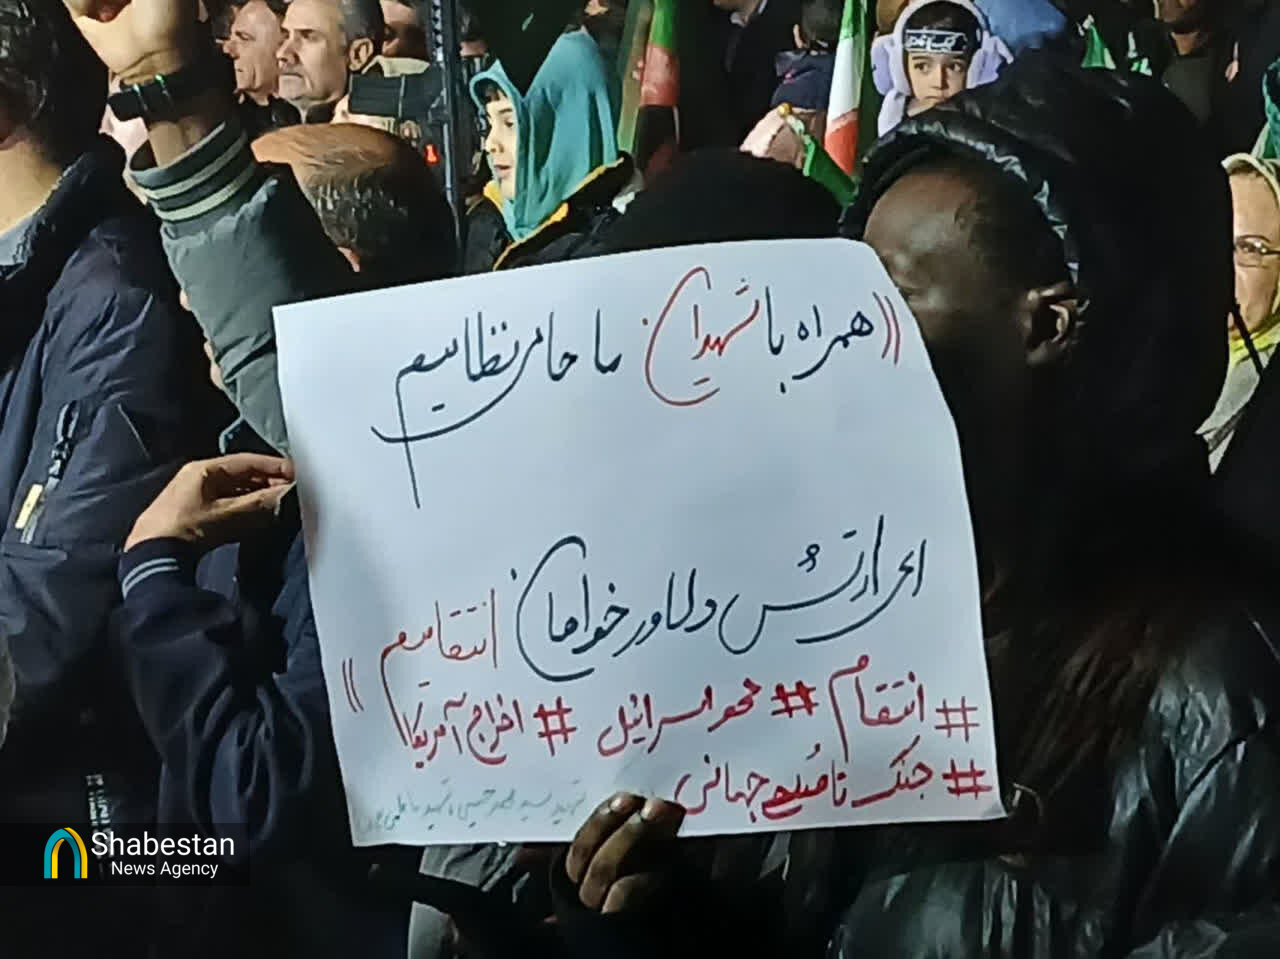 «همراه با شهیدان ما حامی نظامیم
ای ارتش دلاور خواهان انتقامیم»
# انتقام # محو اسرائیل # اخراج آمریکا
# جنگ تا صلح جهانی
Shabestan
News Agency